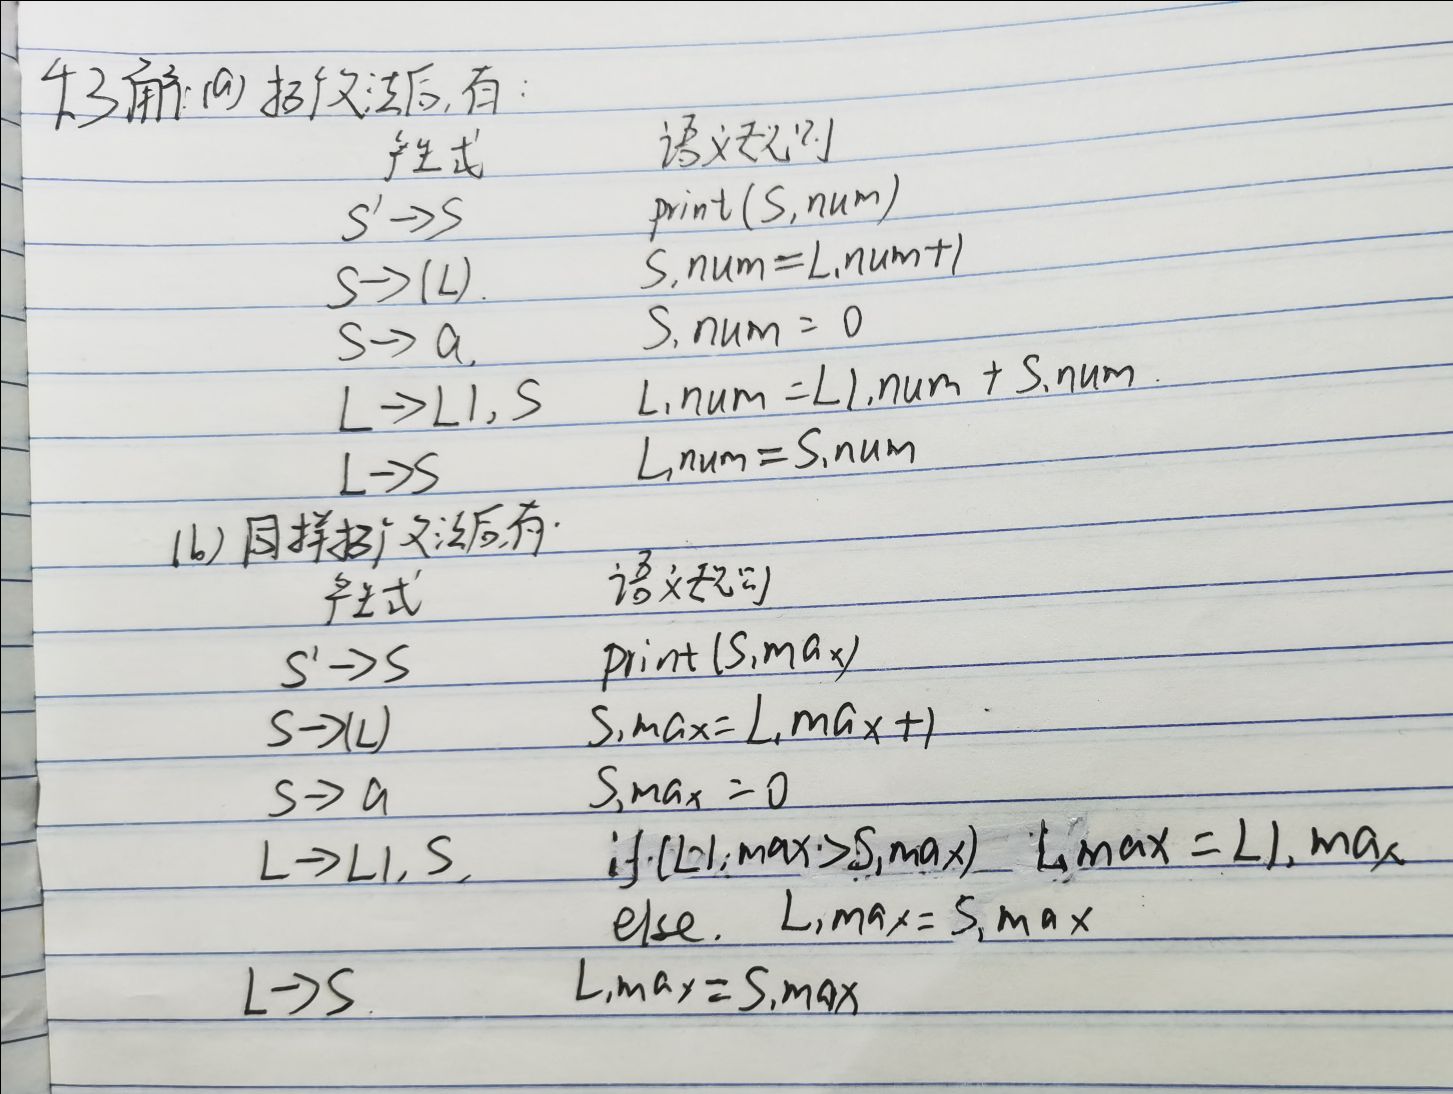 4.3解:(a) 拓广文法后,有:
产生式 语义规则
S'→S print(S.num)
S→(L). S.num=L.num+1
S→a. S.num=0
L→L1,S L.num=L1.num+S.num.
L→S L.num=S.num
(b) 同样拓广文法后,有.
产生式 语义规则
S'→S print(S.max)
S→(L) S.max=L.max+1
S→a S.max=0
L→L1,S. if(L1.max>S.max) L.max=L1.max
else. L.max=S.max
L→S. L.max=S.max